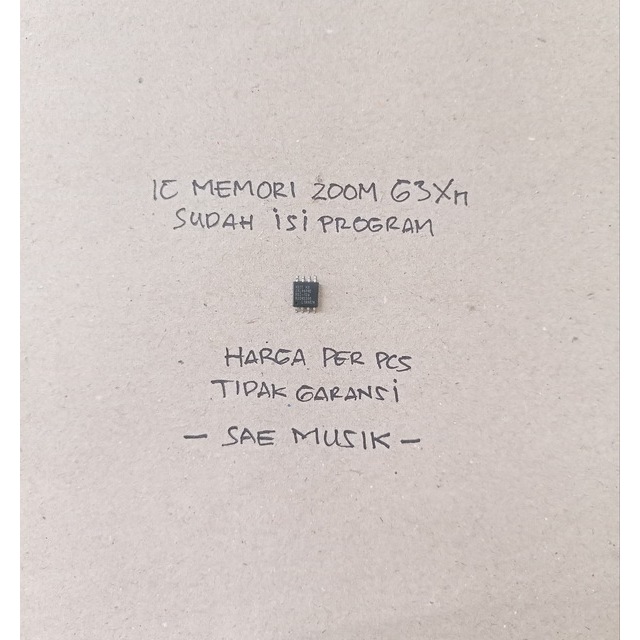 IC MEMORI ZOOM G3Xn
SUDAH ISI PROGRAM
HARGA PER PCS
TIDAK GARANSI
- SAE MUSIK -